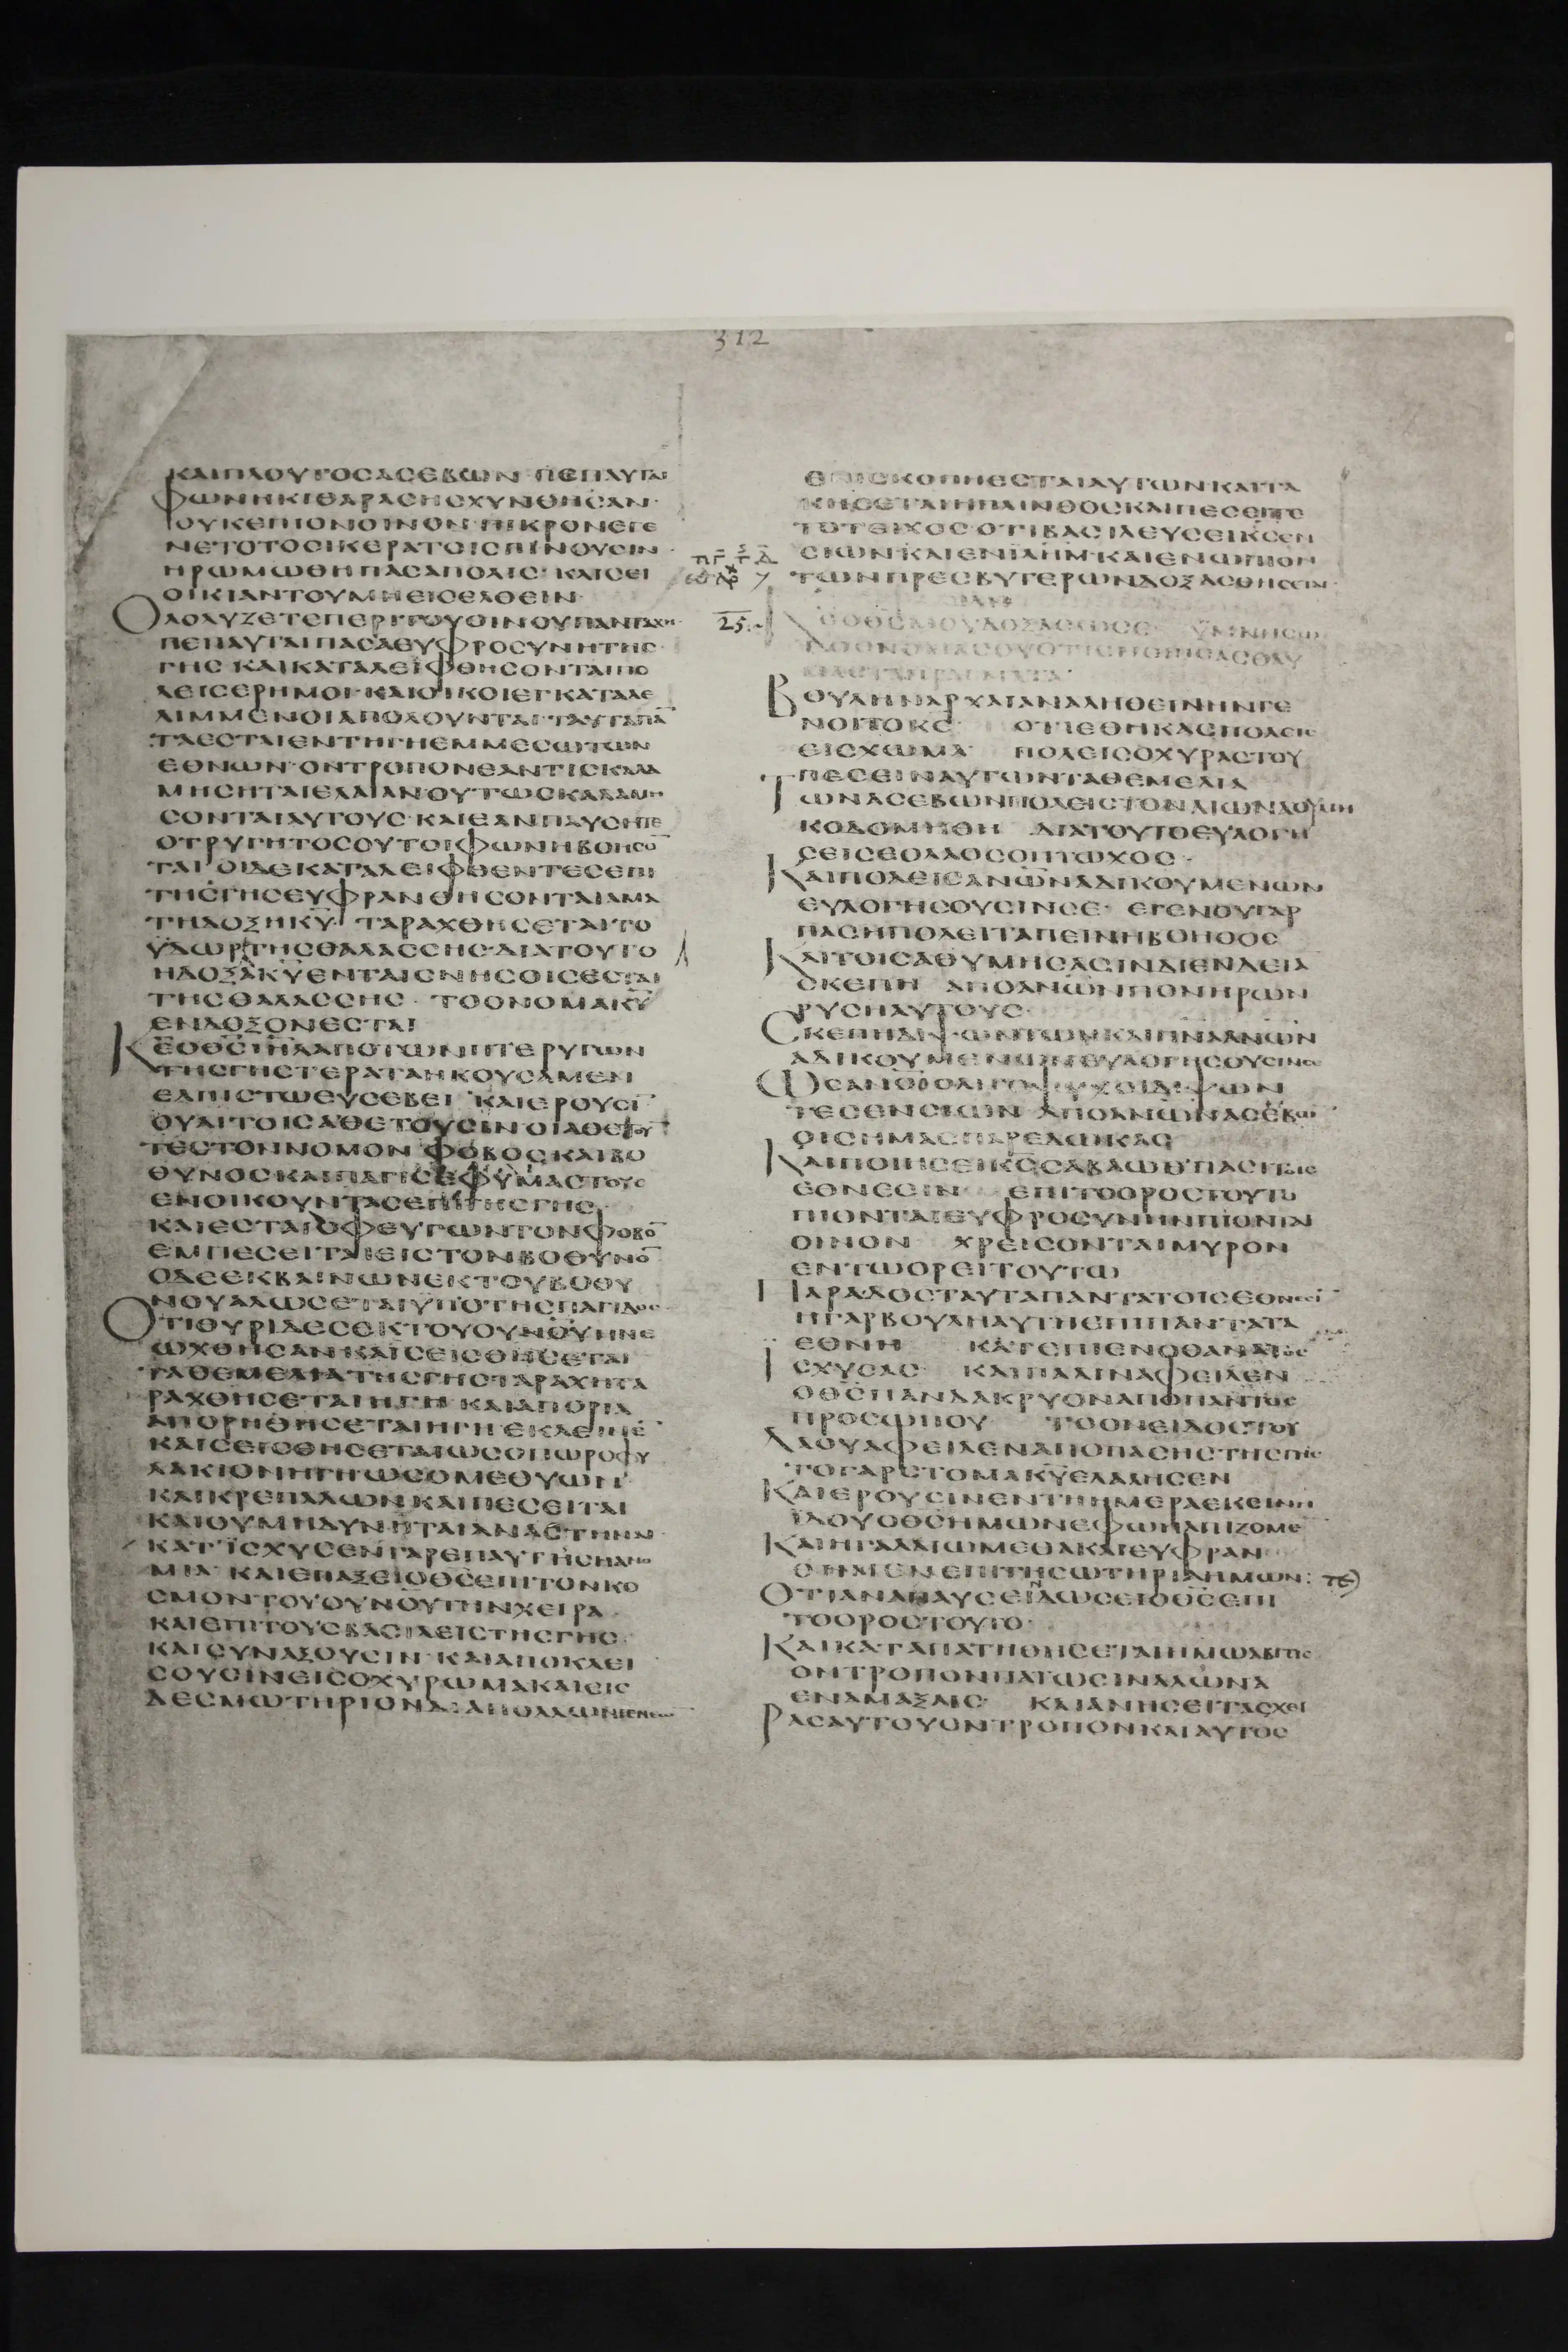 312
ΚΑΙΠΛΟΥΤΟСΑСΕΒΩΝ ΠΕΠΑΥΤΑΙ
ΦΩΝΗΚΙΘΑΡΑСΗСΧΥΝΘΗСΑΝ
ΟΥΚΕΠΙΟΝΟΙΝΟΝ ΠΙΚΡΟΝΕΓΕ
ΝΕΤΟΤΟСΙΚΕΡΑΤΟΙСΠΙΝΟΥСΙΝ
ΗΡΩΜΩΘΗΠΑСΑΠΟΛΙС ΚΛΙСΕΙ
ΟΙΚΙΑΝΤΟΥΜΗΕΙСΕΛΘΕΙΝ
ΟΛΟΛΥΖΕΤΕΠΕΡΙΤΟΥΟΙΝΟΥΠΑΝΤΑΧΗ
ΠΕΠΑΥΤΑΙΠΑСΑΕΥΦΡΟСΥΝΗΤΗС
ΓΗС ΚΑΙΚΑΤΑΛΕΙΦΘΗСΟΝΤΑΙΠΟ
ΛΕΙСΕΡΗΜΟΙ ΚΑΙΟΙΚΟΙΕΓΚΑΤΑΛΕ
ΛΙΜΜΕΝΟΙΑΠΟΛΟΥΝΤΑΙ ΤΑΥΤΑΠΑ̅
ΤΑΕСΤΑΙΕΝΤΗΓΗΕΜΜΕСΩΤΩΝ
ΕΘΝΩΝ ΟΝΤΡΟΠΟΝΕΑΝΤΙСΚΑΛΑ
ΜΗСΗΤΑΙΕΛΑΙΑΝΟΥΤΩСΚΑΛΑΜΗ
СΟΝΤΑΙΑΥΤΟΥС ΚΑΙΕΑΝΠΑΥСΗΤΕ
ΟΤΡΥΓΗΤΟСΟΥΤΟΙΦΩΝΗΒΟΗСΟ̅
ΤΑΙ ΟΙΔΕΚΑΤΑΛΕΙΦΘΕΝΤΕСΕΠΙ
ΤΗСΓΗСΕΥΦΡΑΝΘΗСΟΝΤΑΙΑΜΑ
ΤΗΔΟΞΗΚΥ̅ ΤΑΡΑΧΘΗСΕΤΑΙΤΟ
ΥΔΩΡΤΗСΘΑΛΑССΗС ΔΙΑΤΟΥΤΟ
ΗΔΟΞΑΚΥ̅ΕΝΤΑΙСΝΗСΟΙСΕСΤΑΙ
ΤΗСΘΑΛΑССΗС ΤΟΟΝΟΜΑΚΥ̅
ΕΝΔΟΞΟΝΕСΤΑΙ
Κ̅Ε̅Ο̅Θ̅С̅Ι̅Η̅Λ̅ΑΠΟΤΩΝΠΤΕΡΥΓΩΝ
ΤΗСΓΗСΤΕΡΑΤΑΗΚΟΥСΑΜΕΝ
ΕΛΠΙСΤΩΕΥСΕΒΕΙ ΚΑΙΕΡΟΥСΙ̅
ΟΥΑΙΤΟΙСΑΘΕΤΟΥСΙΝ ΟΙΑΘΕΤΟΥ
ΤΕСΤΟΝΝΟΜΟΝ ΦΟΒΟСΚΑΙΒΟ
ΘΥΝΟСΚΑΙΠΑΓΙСΕΦΥΜΑСΤΟΥС
ΕΝΟΙΚΟΥΝΤΑСΕΠΙΤΗСΓΗС
ΚΑΙΕСΤΑΙΟΦΕΥΓΩΝΤΟΝΦΟΒΟ̅
ΕΜΠΕСΕΙΤΑΙΕΙСΤΟΝΒΟΘΥΝΟ̅
ΟΔΕΕΚΒΑΙΝΩΝΕΚΤΟΥΒΟΘΥ
ΝΟΥΑΛΩСΕΤΑΙΥΠΟΤΗСΠΑΓΙΔΟС
ΟΤΙΘΥΡΙΔΕСΕΚΤΟΥΟΥΝΟΥΗΝΕ
ΩΧΘΗСΑΝΚΑΙСΕΙСΘΗСΕΤΑΙ
ΤΑΘΕΜΕΛΙΑΤΗСΓΗСΤΑΡΑΧΗΤΑ
ΡΑΧΘΗСΕΤΑΙΗΓΗ ΚΑΙΑΠΟΡΙΑ
ΑΠΟΡΗΘΗСΕΤΑΙΗΓΗ ΕΚΛΕΙΝΕ
ΚΑΙСΕΙСΘΗСΕΤΑΙΩСΟΠΩΡΟΦΥ
ΛΑΚΙΟΝΗΓΗΩСΟΜΕΘΥΩΝ
ΚΑΙΚΡΕΠΑΛΩΝΚΑΙΠΕСΕΙΤΑΙ
ΚΑΙΟΥΜΗΔΥΝΗΤΑΙΑΝΑСΤΗΝΑΙ
ΚΑΤΙСΧΥСΕΝΓΑΡΕΠΑΥΤΗСΗΑΝΟ
ΜΙΑ ΚΑΙΕΠΑΞΕΙΟΘ̅С̅ΕΠΙΤΟΝΚΟ
СΜΟΝΤΟΥΟΥΝΟΥΤΗΝΧΕΙΡΑ
ΚΑΙΕΠΙΤΟΥСΒΑСΙΛΕΙСΤΗСΓΗС
ΚΑΙСΥΝΑΞΟΥСΙΝ ΚΑΙΑΠΟΚΛΕΙ
СΟΥСΙΝΕΙСΟΧΥΡΩΜΑΚΑΙΕΙС
ΔΕСΜΩΤΗΡΙΟΝ
ΕΠΙСΚΟΠΗΕСΤΑΙΑΥΤΩΝΚΑΙΤΑ
ΚΗСΕΤΑΙΗΠΛΙΝΘΟСΚΑΙΠΕСΕΙΤΕ
ΤΟΤΕΙΧΟСΟΤΙΒΑСΙΛΕΥСΕΙΚ̅С̅ΕΝ
СΙΩΝΚΑΙΕΝΙ̅Λ̅Η̅Μ̅ ΚΑΙΕΝΩΠΙΟΝ
ΤΩΝΠΡΕСΒΥΤΕΡΩΝΔΟΞΑСΘΗСΕΤΑΙ
25
ΒΟΥΛΗΝΑΡΧΑΙΑΝΑΛΗΘΕΙΝΗΝΓΕ
ΝΟΙΤΟΚΕ̅ ΟΤΙΕΘΗΚΑСΠΟΛΕΙС
ΕΙСΧΩΜΑ ΠΟΛΕΙСΟΧΥΡΑСΤΟΥ
ΠΕСΕΙΝΑΥΤΩΝΤΑΘΕΜΕΛΙΑ
ΤΩΝΑСΕΒΩΝΠΟΛΕΙСΤΟΝΑΙΩΝΑΟΥΜΗ
ΚΟΔΟΜΗΘΗ ΔΙΑΤΟΥΤΟΕΥΛΟΓΗ
СΕΙСΕΟΛΑΟСΟΠΤΩΧΟС
ΚΑΙΠΟΛΕΙСΑΝΩ̅Ν̅ΑΔΙΚΟΥΜΕΝΩΝ
ΕΥΛΟΓΗСΟΥСΙΝСΕ ΕΓΕΝΟΥΓΑΡ
ΠΑСΗΠΟΛΕΙΤΑΠΕΙΝΗΒΟΗΘΟС
ΚΑΙΤΟΙСΑΘΥΜΗСΑСΙΝΔΙΕΝΔΕΙΑ
СΚΕΠΗ ΑΠΟΑΝΩ̅Ν̅ΠΟΝΗΡΩΝ
ΡΥСΗΑΥΤΟΥС
СΚΕΠΗΔΙΨΩΝΤΩΝΚΑΙΠΝ̅Α̅ΑΝΩ̅Ν̅
ΑΔΙΚΟΥΜΕΝΩΝΕΥΛΟΓΗСΟΥСΙΝСΕ
ΩСΑΝΘΡΩΠΟΙΟΛΙΓΟΨΥΧΟΙΔΙΨΩΝ
ΤΕСΕΝСΙΩΝ ΑΠΟΑΝΩ̅Ν̅ΑСΕΒΩΝ
ΟΙСΗΜΑСΠΑΡΕΔΩΚΑС
ΚΑΙΠΟΙΗСΕΙΚ̅С̅СΑΒΑΩΘΠΑСΙΤΟΙС
ΕΘΝΕСΙΝ ΕΠΙΤΟΟΡΟСΤΟΥΤΟ
ΠΙΟΝΤΑΙΕΥΦΡΟСΥΝΗΝΠΙΟΝΤΑΙ
ΟΙΝΟΝ ΧΡΕΙСΟΝΤΑΙΜΥΡΟΝ
ΕΝΤΩΟΡΕΙΤΟΥΤΩ
ΠΑΡΑΔΟСΤΑΥΤΑΠΑΝΤΑΤΟΙСΕΘΝΕСΙ̅
ΗΓΑΡΒΟΥΛΗΑΥΤΗΕΠΙΠΑΝΤΑΤΑ
ΕΘΝΗ ΚΑΤΕΠΙΕΝΟΘΑΝΑΤΟС
ΙСΧΥСΑС ΚΑΙΠΑΛΙΝΑΦΕΙΛΕΝ
ΟΘ̅С̅ΠΑΝΔΑΚΡΥΟΝΑΠΟΠΑΝΤΟС
ΠΡΟСΩΠΟΥ ΤΟΟΝΕΙΔΟСΤΟΥ
ΛΑΟΥΑΦΕΙΛΕΝΑΠΟΠΑСΗСΤΗСΓΗС
ΤΟΓΑΡСΤΟΜΑΚΥ̅ΕΛΑΛΗСΕΝ
ΚΑΙΕΡΟΥСΙΝΕΝΤΗΗΜΕΡΑΕΚΕΙΝΗ
ΙΔΟΥΟΘ̅С̅ΗΜΩΝΕΦΩΗΛΠΙΖΟΜΕ̅
ΚΑΙΗΓΑΛΛΙΩΜΕΘΑΚΑΙΕΥΦΡΑΝ
ΘΗΜΕΝΕΠΙΤΗСΩΤΗΡΙΑΗΜΩΝ
ΟΤΙΑΝΑΠΑΥСΕΙΝΔΩСΕΙΟΘ̅С̅ΕΠΙ
ΤΟΟΡΟСΤΟΥΤΟ
ΚΑΙΚΑΤΑΠΑΤΗΘΗСΕΤΑΙΗΜΩΑΒΙΤΙС
ΟΝΤΡΟΠΟΝΠΑΤΩСΙΝΑΛΩΝΑ
ΕΝΑΜΑΞΑΙС ΚΑΙΑΝΗСΕΙΤΑСΧΕΙ
ΡΑСΑΥΤΟΥΟΝΤΡΟΠΟΝΚΑΙΑΥΤΟС